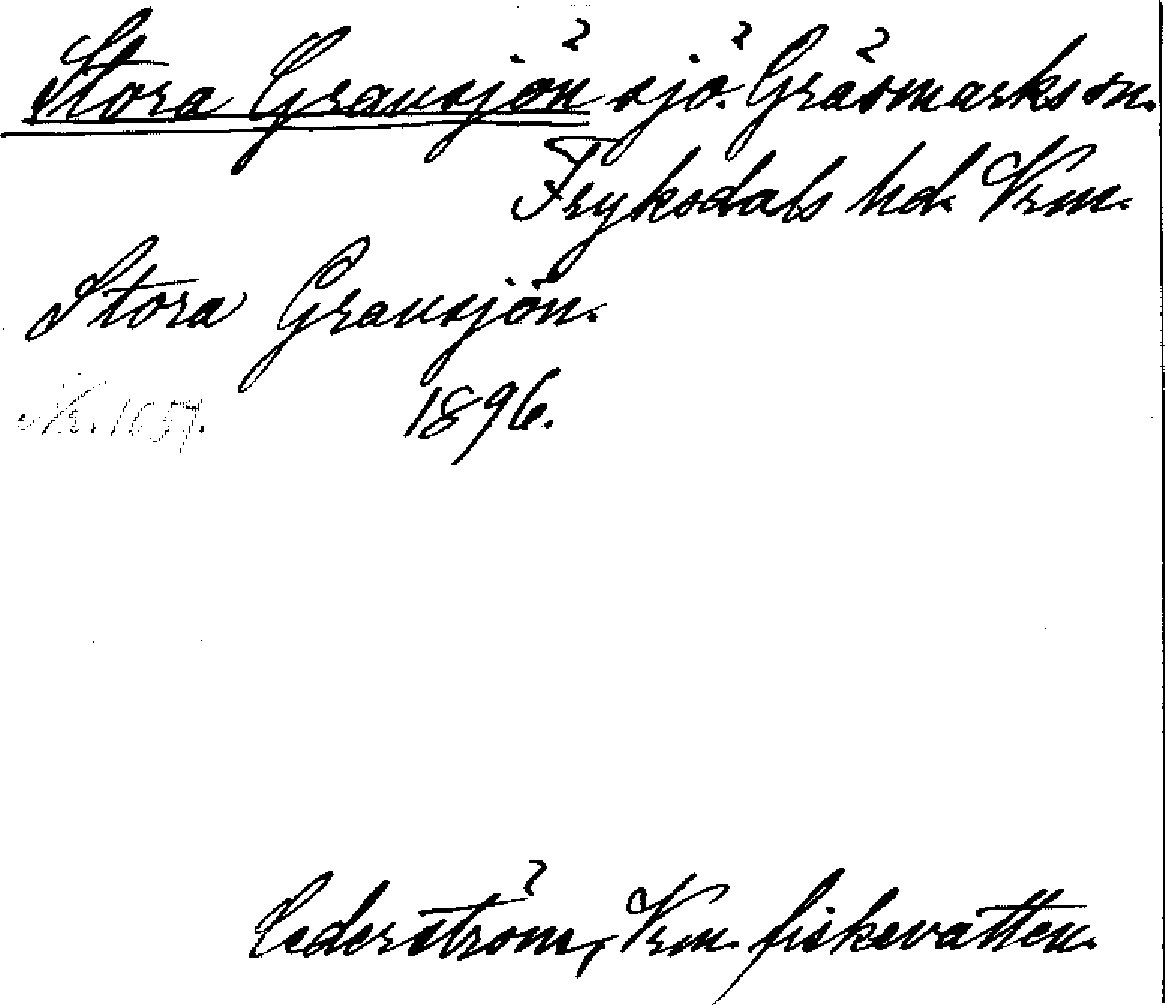 Stora Gransjön sjö. Gräsmarks sn.
Fryksdals hd. Vrm.
Stora Gransjön.
No. 1657. 1896.
Cederström, Vrm. fiskevatten.